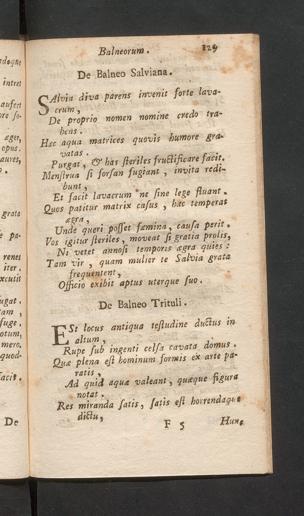 Balneorum. 129
De Balneo Salviana.
SAlvia diva parens invenit forte lava-
crum,
De proprio nomen nomine credo tra-
hens.
Hæc aqua matrices quovis humore gra-
vatas
Purgat, & has steriles fructificare facit.
Menstrua si forsan fugiant, invita redi-
bunt,
Et facit lavacrum ne sine lege fluant.
Quos patitur matrix casus, hæc temperat
ægra,
Unde queri posset fæmina, causa perit.
Vos igitur steriles, moveat si gratia prolis,
Ni vetet annosi temporis ægra quies:
Tam vir, quam mulier te Salvia grata
frequentent,
Officio exibit aptus uterque suo.
De Balneo Trituli.
ESt locus antiqua testudine ductus in
altum,
Rupe sub ingenti celsa cavata domus.
Quæ plena est hominum formis ex arte pa-
ratis,
Ad quid aquæ valeant, quæque figura
notat.
Res miranda satis, satis est horrendaque
dictu,
F 5 Hunc
De